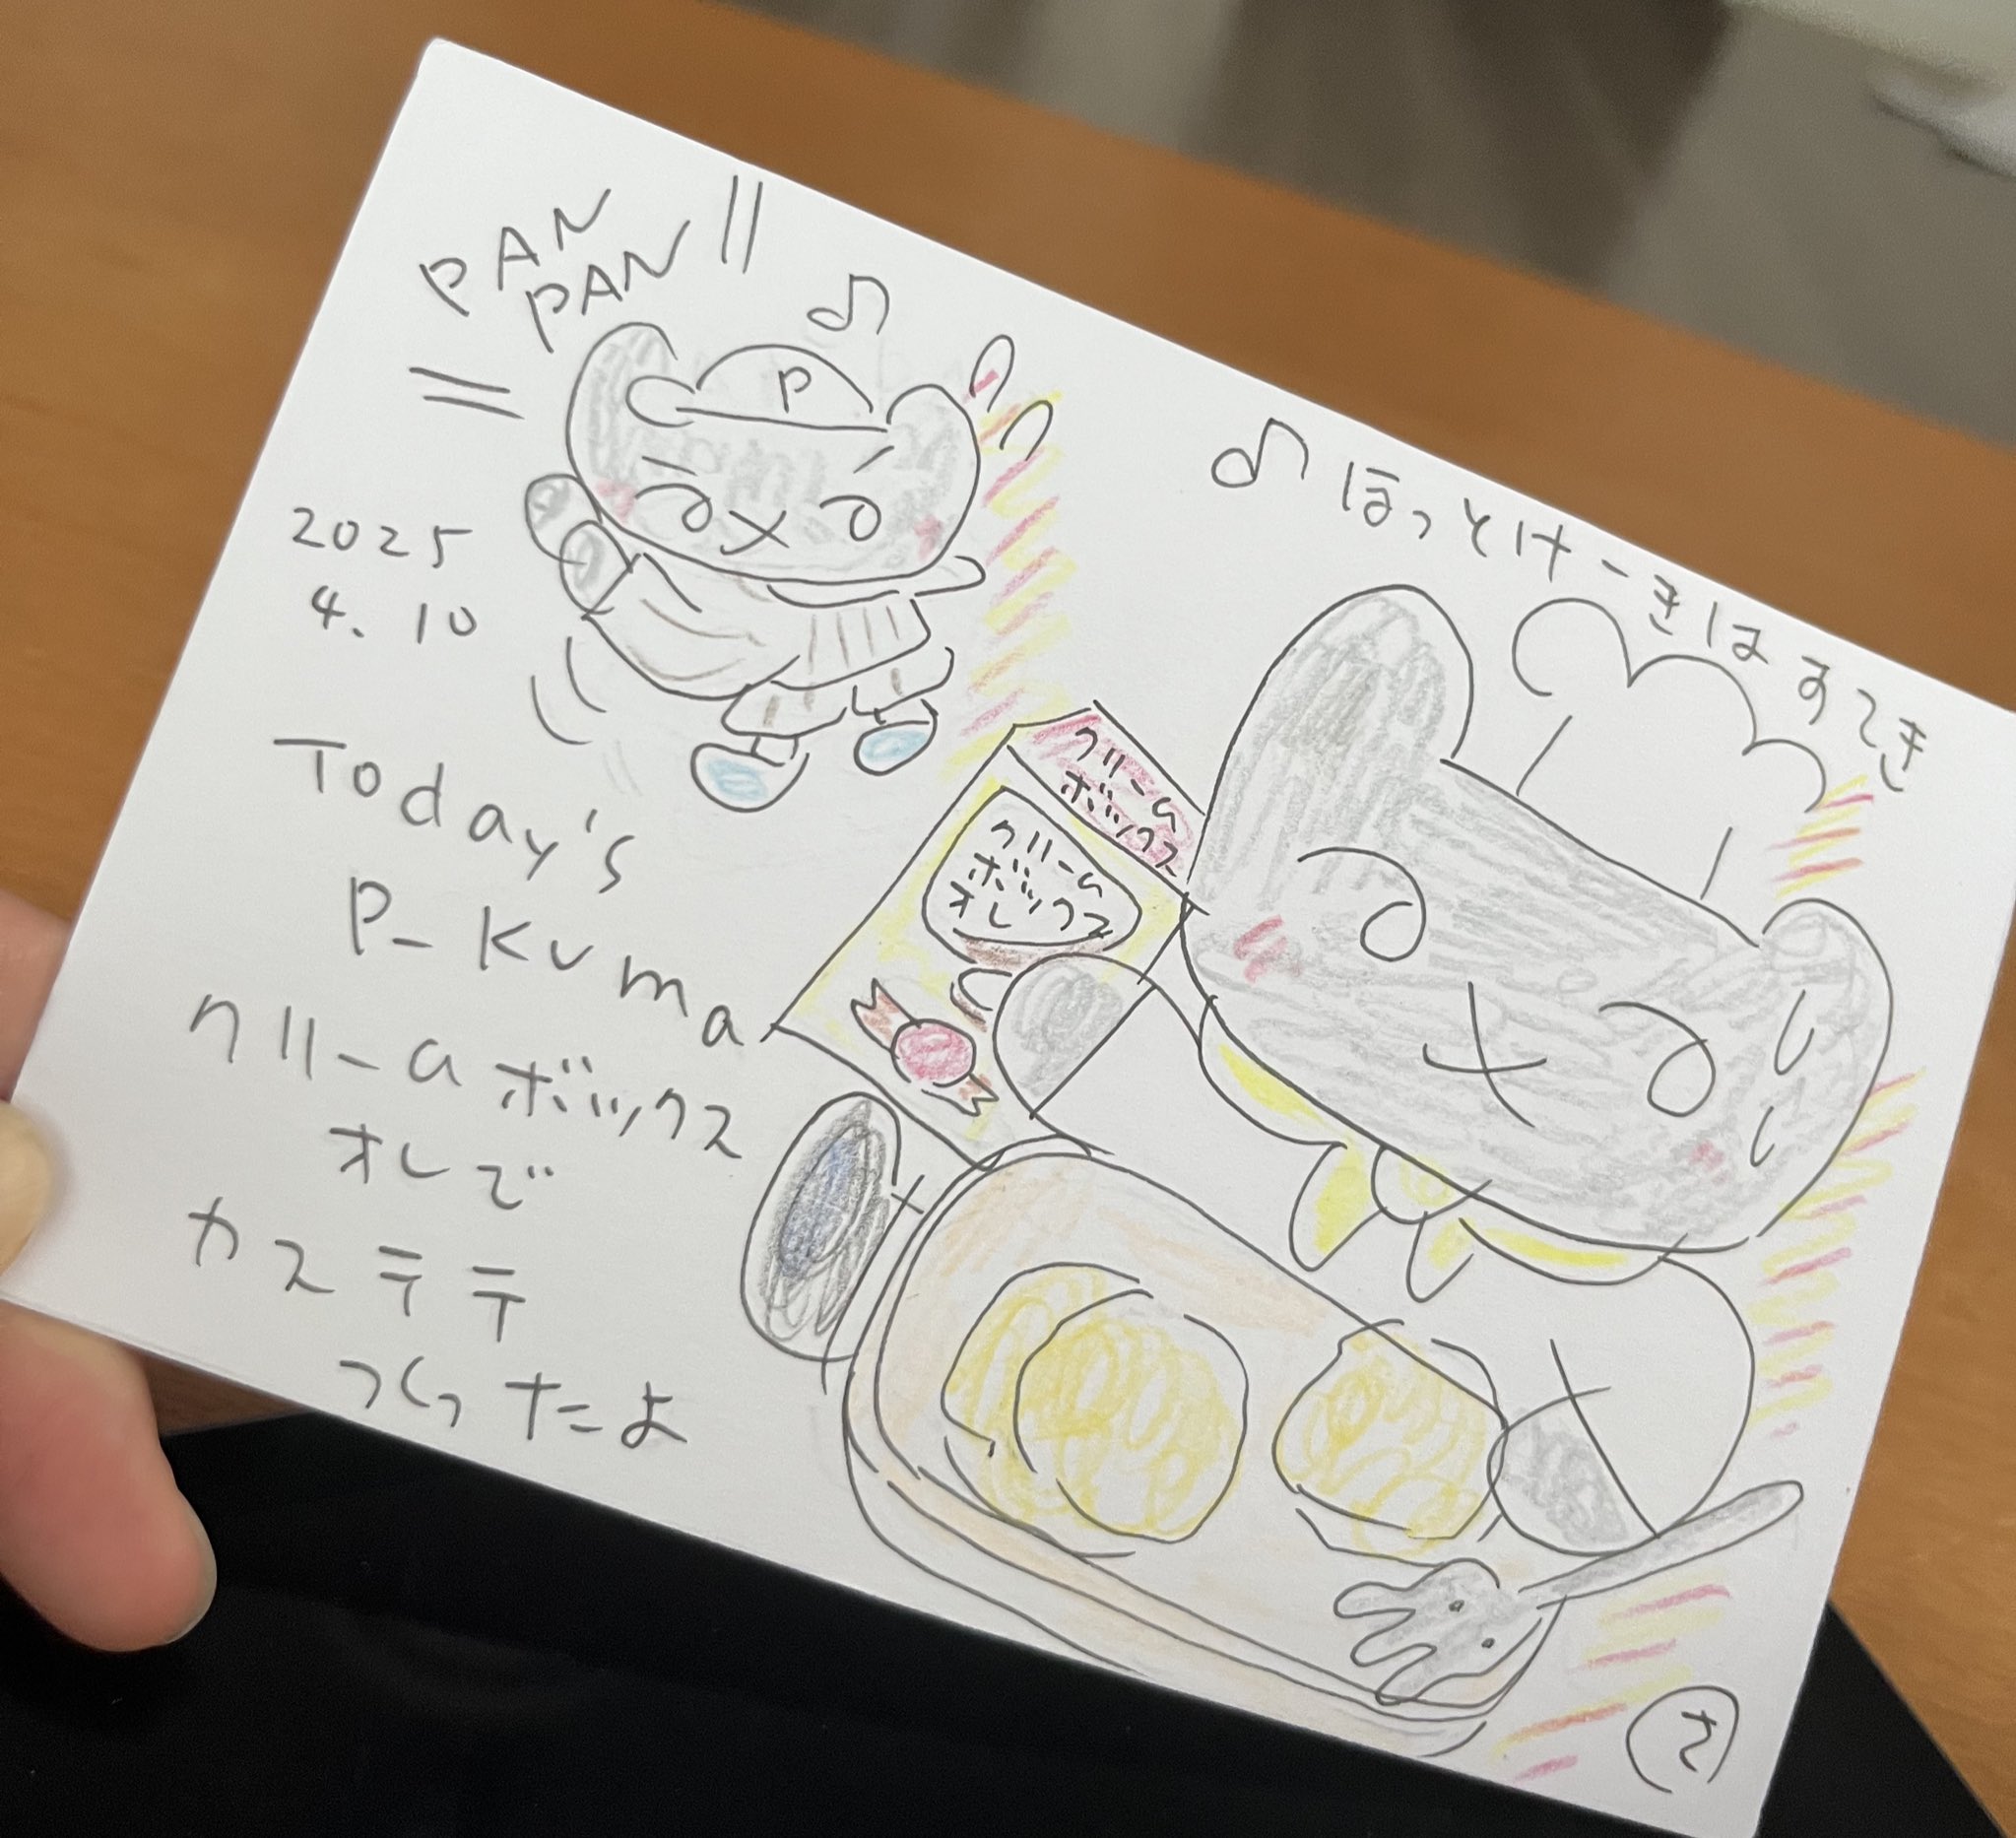 PAN
PAN
P
2025
4.10
Today's
P-Kuma
クリーム ボックス
オレで
カステテ
つくったよ
♪ほっとけーきはすてき
クリーム
ボックス
クリーム
ボックス
オレ